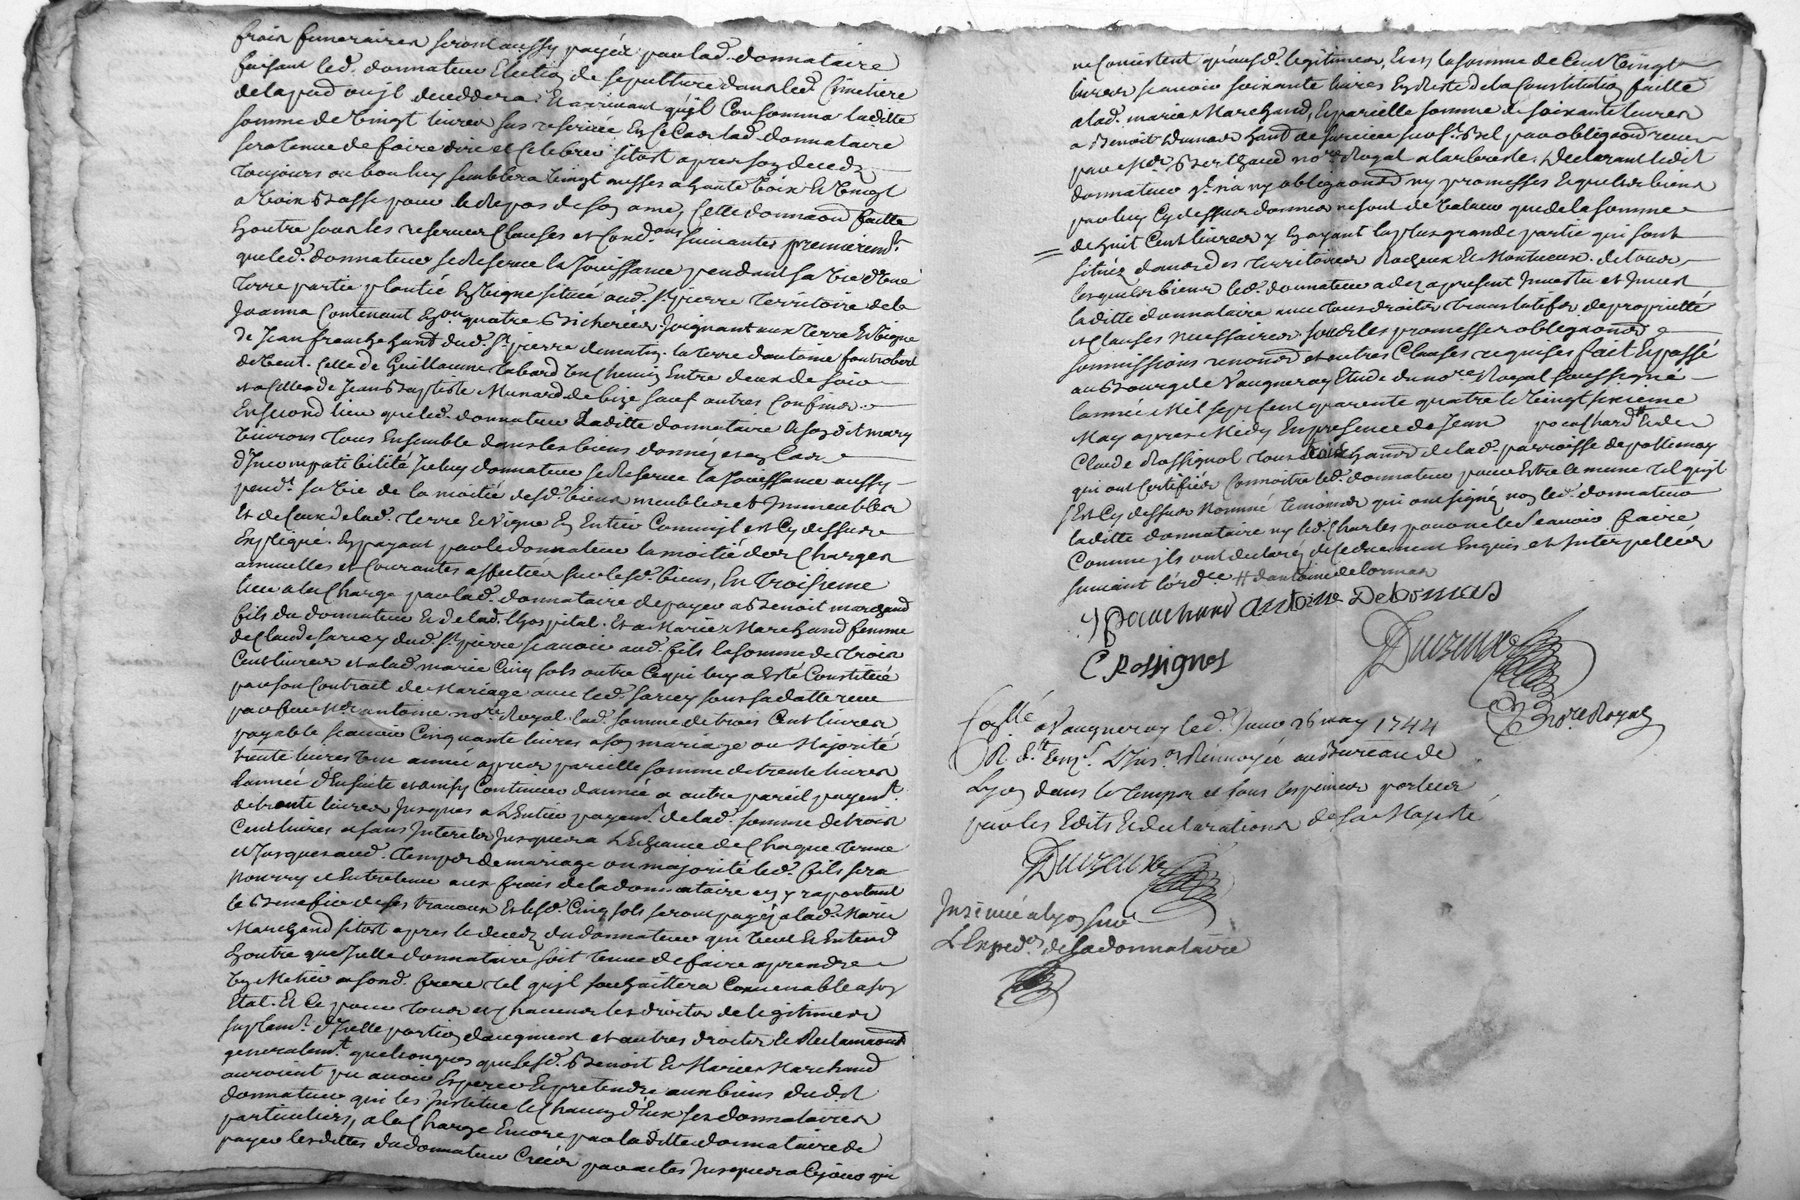 frais funeraires seront aussy payés par lad. donnataire
faisant led. donnateur Election de sepulture dans led. Cimetiere
de la par. ou jl deceddera. Et arrivant qu'jl Consomma laditte
somme de Vingt livres sus reservée En Ce Cas lad. donnataire
sera tenue de faire dire et Celebrer sitost apres son decedz
toujours ou bon luy semblera Vingt messes a haute Voix Et Vingt
a Voix Basse pour le Repos de son ame, Cette donnaon faitte
En outre sous les reserves Clauses et Cond.ons suivantes premierem.t
que led. donnateur se Reserve la Jouissance pendant sa Vie d'Une
terre partie plantée En Vigne située aud. St pierre territoire de la
Joanna Contenant Environ quatre Bicherées Joignant aux terre Et Vigne
de Jean franchehant dud. St pierre de matin. la terre d'antoine
de Vent. Celle de Guillaume tabard Un Chemin Entre deux de soir
et a Celle de Jean Baptiste Munard de bize sauf autres Confins.
En second lieu que led. donnateur Laditte donnataire Et son dit mary
Vivront tous Ensemble dans les biens donnés et en Cas
d'Incompatibilité Jceluy donnateur se Reserve la Jouissance aussy
pend.t sa Vie de la moitié desd. biens meubles et Immeubles
Et de Ceux de lad. terre Et Vigne En Entier Comm'jl est Cy dessus
Expliqué. En payant par le donnateur la moitié des Charges
annuelles et Courantes affectées sur lesd. biens, En troisieme
lieu a la Charge par lad. donnataire de payer a Benoit marchand
fils du donnateur Et de lad. Lhospital. Et a Marie Marchand femme
de Claude sarcey dud. St pierre scavoir aud. fils la somme de trois
Cent livres et a lad. marie Cinq sols outre Ce qui luy a Esté Constitué
par son Contrait de Mariage avec led. sarcey sous sa datte receu
par feu Me antoine no.re Royal. lad. somme de trois Cent livres
payable scavoir Cinquante livres a son mariage ou Majorité
trente livres Une année apres pareille somme de trente livres
l'année d'Ensuite et ainsy Continuer d'année a autre pareil payem.t
de trente livres Jusques a L'Entier payem.t de lad. somme de trois
Cent livres et sans Interets Jusques a L'Echeance de Chaque terme
et Jusques aud. temps de mariage ou majorité led. fils sera
Nourry et Entretenu aux frais de la donnataire en y raportant
le Benefice de ses travaux Et lesd. Cinq sols seront payés a lad. Marie
Marchand sitost apres le decedz du donnateur qui Veut Et Entend
En outre que Jcelle donnataire soit tenue de faire aprendre
Un Metier a sond. frere tel qu'jl souhaittera Convenable a son
Etat. Et Ce pour tous et Chacuns les droits de legitimes
suplem.t d'Jcelle portion d'augment et autres droits Et Reclamaons
generalem.t quelconques que lesd. Benoit Et Marie Marchand
auroient pu avoir Esperer Et pretendre aux biens dudit
donnateur qui les Jnstitue Et Chacun d'Eux ses donnataires
particuliers, a la Charge Encore par laditte donnataire de
payer les dettes du donnateur Crées par actes Jusques a Ce jour qui
ne Consistent qu'ausd. legitimes, Et en la somme de Cent Vingt
livres scavoir soixante livres En Reste de la Constitution faitte
a lad. marie Marchand, Et pareille somme de soixante livres
a Benoit Dumas hant de Sarcieu sur St Bel par obligaon receue
par Me Berthaud no.re Royal a larbresle. Declarant ledit
donnateur qu'jl n'a ny obligaons ny promesses Et que les biens
par luy Cy dessus donnés ne sont de Valeur que de la somme
de huit Cent livres y En ayant la plus grande partie qui sont
situés dans des territoires Rocheux Et Montueux. de tous
lesquels biens led. donnateur a dez a present Jnvestu et Jnvest
laditte donnataire avec tous droits translatifs de proprietté
et Clauses necessaires sous les promesses obligaons
sommissions renoncions et autres Clauses requises fait Et passé
au Bourg de Vaugneray Etude du no.re Royal soussigné
l'année Mil sept cent quarente quatre le Vingt sixieme
May apres Midy En presence de Jean pouchard Et de
Claude Rossignol tous deux hants de lad. parroisse de pollionay
qui ont Certifiés Connoitre led. donnateur pour Estre le meme tel qu'jl
Est Cy dessus Nommé temoins qui ont signé non led. donnateur
laditte donnataire ny led. Charles pour ne le scavoir faire
Comme jls ont declarez de Ce duement Enquis et Interpellés
suivant l'ord.ce # d'antoine delormas
J pouchard antoine Delormas
C Rossignol
Duvzeuxe
No.re Royal
Con.lle a Vaugneray led. Jour 26 may 1744
R. d.t L'ins.on Renvoyée au Bureau de
Lyon dans le temps et sous les peines portées
par les Edits Et declarations de sa Majesté
Jnsinué a lyon sur
L'Exped.on de la donnataire